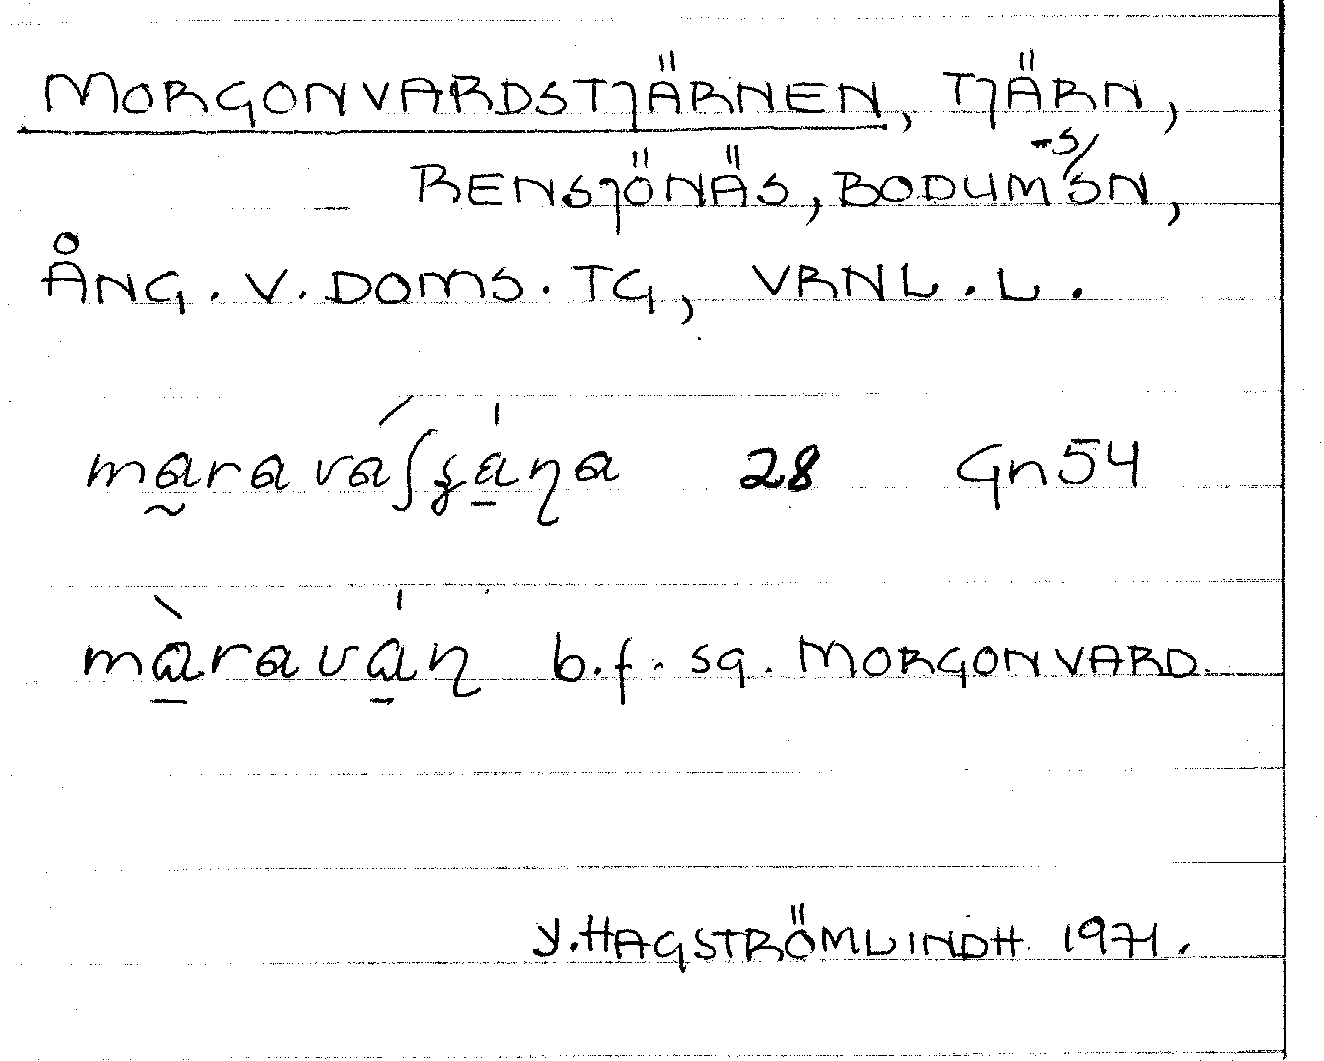 MORGONVARDSTJÄRNEN, TJÄRN,
RENSJÖNÄS, BODUM-S/SN,
ÅNG. V. DOMS. TG, VRNL. L.
28 Gn 54
b.f. sg. MORGONVARD.
Y. HAGSTRÖMLINDH 1971.